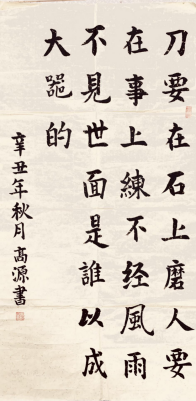 刀要在石上磨人要
在事上練不经風雨
不見世面是誰以成
大噐的
辛丑年秋月高源書